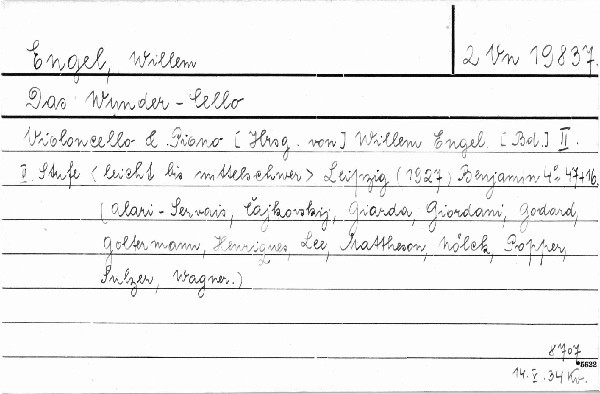 Engel, Willem
2 Vn 19837.
Das Wunder-Cello
Violoncello & Piano [Hrsg. von] Willem Engel. [Bd.] II.
II. Stufe <leicht bis mittelschwer> Leipzig (1927) Benjamin 4° 47+16.
(Alari-Servais, Čajkovskij, Giarda, Giordani, Godard,
Goltermann, Henriques, Lee, Mattheson, Nölck, Popper,
Sulzer, Wagner.)
8707
5632
14. V. 34 Kv.